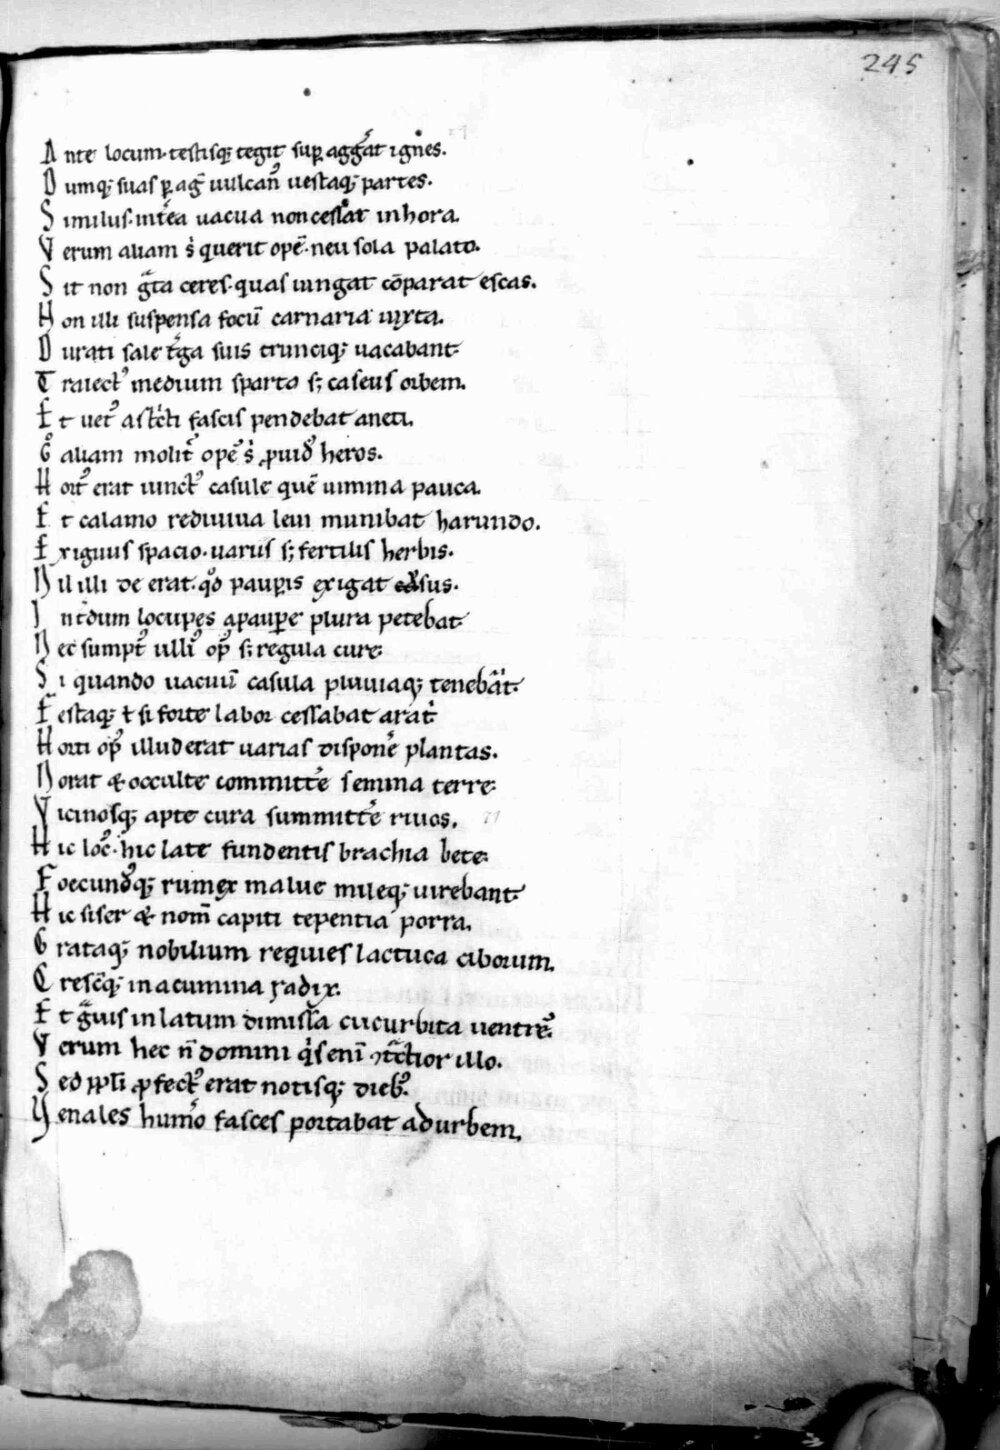 245
Ante locum. testisq; tegit sup agg̃at ignes.
Dumq; suas p ag̃ uulcan᷒ uestaq; partes.
Similus. int̃ea uacua non cessat in hora.
Verum aliam s querit opẽ. neu sola palato.
Sit non g̃ta ceres. quas iungat cõparat escas.
Non illi suspensa focũ carnaria iuxta.
Durati sale t̃ga suis trunciq; uacabant.
Traiect᷒ medium sparto s; caseus orbem.
Et uet᷒ ast̃cti fascis pendebat aneti.
G° aliam molit᷒ opẽ s ꝓuid᷒ heros.
Hort᷒ erat iunct᷒ casule quẽ uimina pauca.
Et calamo rediuiua leui munibat harundo.
Exiguus spacio. uariis s; fertilis herbis.
Nil illi de erat. qd̊ paupis exigat sus.
Int̃dum locupes a paupe plura petebat
Nec sumpt᷒ ulli᷒ op᷒ s; regula cure.
Si quando uacuũ casula pluuiaq; teneb̃at.
Festaq; ł si forte labor cessabat arat̃
Horti op᷒ illud erat uarias disponẽ plantas.
Norat & occulte committẽ semina terre.
Vicinosq; apte cura summittẽ riuos.
Hic loc᷒. hic late fundentis brachia bete.
Foecund᷒q; rumex malue inileq; uirebant.
Hic siser & nom̃ capiti tepentia porra.
Grataq; nobilium requies lactuca ciborum.
Cresc̃q; in acumina radix.
Et g̃uis in latum dimissa cucurbita uentrẽ.
Verum hec ñ domini q̇s eni ꝯt̃ctior illo.
Sed ppłi ꝓfect᷒ erat notisq; dieb᷒.
Venales hum̃o fasces portabat ad urbem.